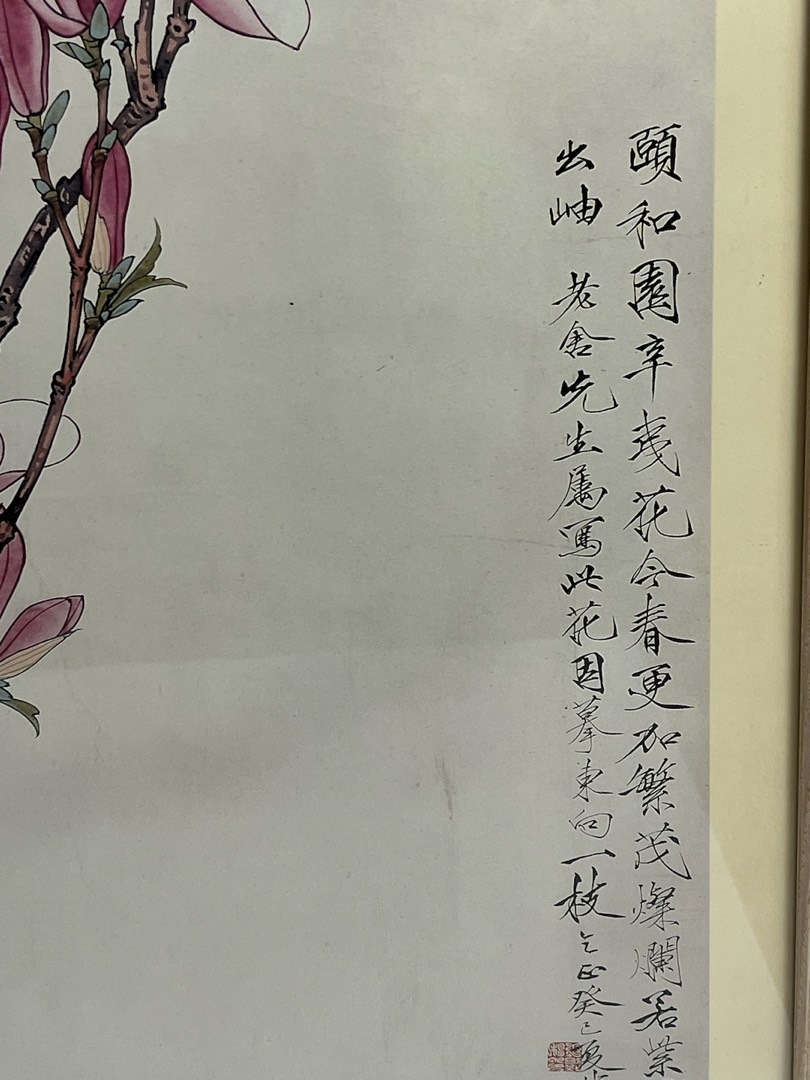 頤和園辛夷花今春更加繁茂燦爛若紫
出岫 老舍先生属寫此花因摹東向一枝乞正癸巳夏